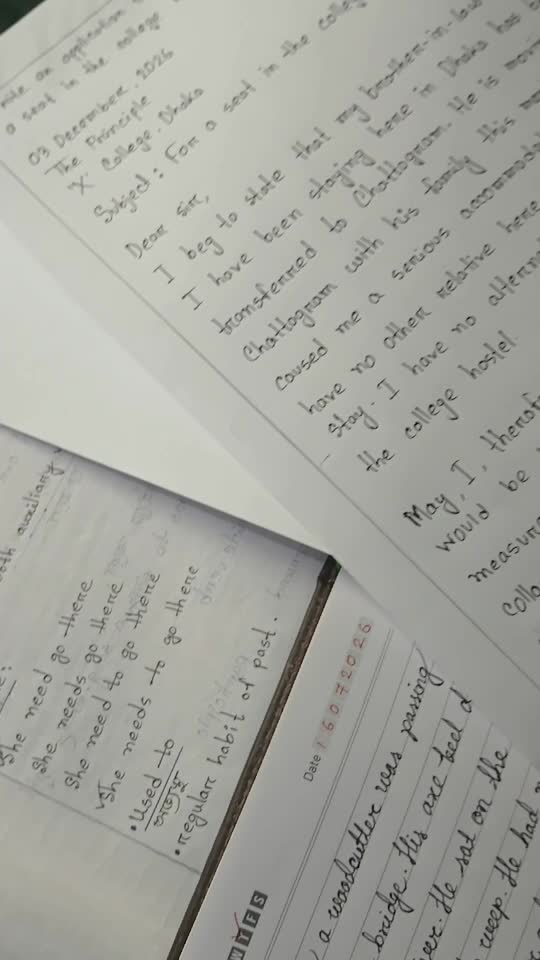 an application
a seat in the college
03 December, 2026
The Principle
'X' College, Dhaka
Subject: For a seat in the college
Dear sir,
I beg to state that my brother-in-law
I have been staying here in Dhaka has
transferred to Chattogram. He is
Chattogram with his family this
caused me a serious
have no other relative here
stay. I have no
the college hostel.
May, I,
would be
both auxiliary
She need go there
She needs go there
She need to go there
She needs to go there
• Used to
অভ্যস্ত
• regular habit of past.
Date 16072026
T F S
a woodcutter was passing
bridge. His axe
He sat on the
weep. He had